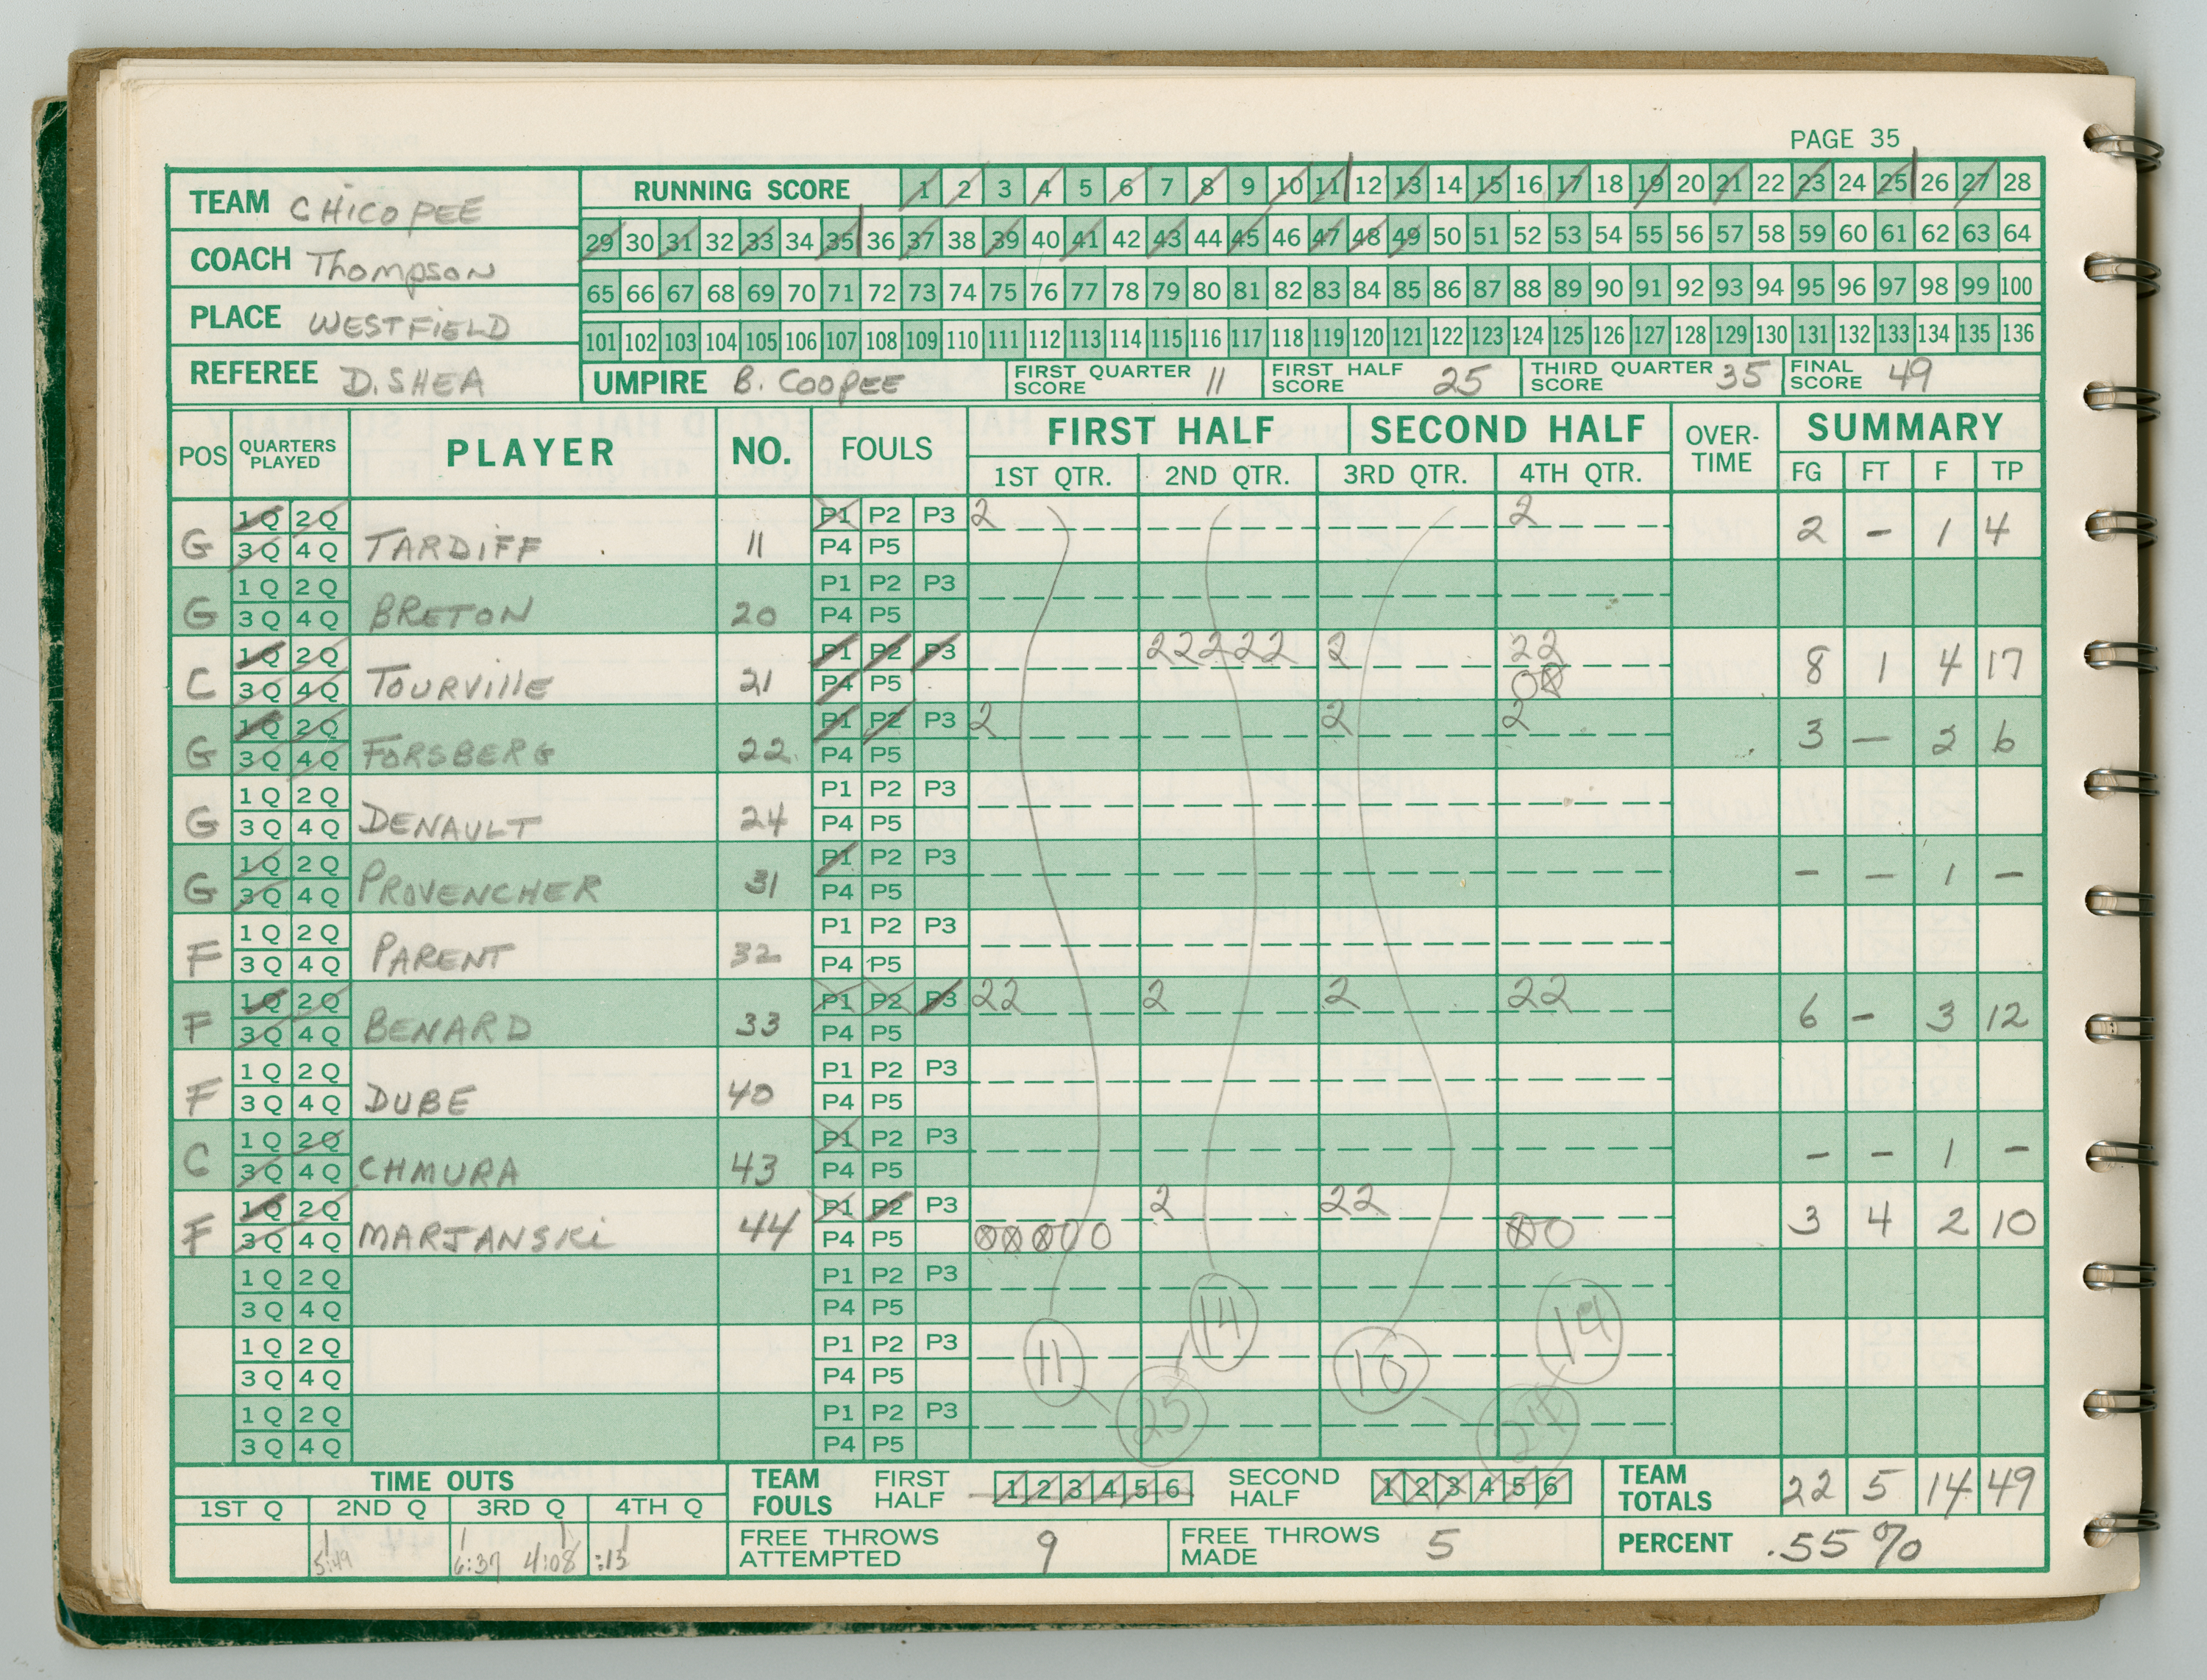 PAGE 35
TEAM CHICOPEE
COACH Thompson
PLACE WESTFIELD
REFEREE D. SHEA
RUNNING SCORE 1 2 3 4 5 6 7 8 9 10 11 12 13 14 15 16 17 18 19 20 21 22 23 24 25 26 27 28
29 30 31 32 33 34 35 36 37 38 39 40 41 42 43 44 45 46 47 48 49 50 51 52 53 54 55 56 57 58 59 60 61 62 63 64
65 66 67 68 69 70 71 72 73 74 75 76 77 78 79 80 81 82 83 84 85 86 87 88 89 90 91 92 93 94 95 96 97 98 99 100
101 102 103 104 105 106 107 108 109 110 111 112 113 114 115 116 117 118 119 120 121 122 123 124 125 126 127 128 129 130 131 132 133 134 135 136
UMPIRE B. COOPEE FIRST QUARTER SCORE 11 FIRST HALF SCORE 25 THIRD QUARTER SCORE 35 FINAL SCORE 49
POS QUARTERS PLAYED PLAYER NO. FOULS FIRST HALF SECOND HALF OVER-TIME SUMMARY
1ST QTR. 2ND QTR. 3RD QTR. 4TH QTR. FG FT F TP
1Q 2Q P1 P2 P3 2 2
G 3Q 4Q TARDIFF 11 P4 P5 2 - 1 4
1Q 2Q P1 P2 P3
G 3Q 4Q BRETON 20 P4 P5
1Q 2Q P1 P2 P3 22222 2 22
C 3Q 4Q TOURVILLE 21 P4 P5 O⊗ 8 1 4 17
1Q 2Q P1 P2 P3 2 2 2
G 3Q 4Q FORSBERG 22 P4 P5 3 - 2 6
1Q 2Q P1 P2 P3
G 3Q 4Q DENAULT 24 P4 P5
1Q 2Q P1 P2 P3
G 3Q 4Q PROVENCHER 31 P4 P5 - - 1 -
1Q 2Q P1 P2 P3
F 3Q 4Q PARENT 32 P4 P5
1Q 2Q P1 P2 P3 22 2 2 22
F 3Q 4Q BENARD 33 P4 P5 6 - 3 12
1Q 2Q P1 P2 P3
F 3Q 4Q DUBE 40 P4 P5
1Q 2Q P1 P2 P3
C 3Q 4Q CHMURA 43 P4 P5 - - 1 -
1Q 2Q P1 P2 P3 2 22
F 3Q 4Q MARJANSKI 44 P4 P5 ⊗⊗⊗OO ⊗O 3 4 2 10
1Q 2Q P1 P2 P3
3Q 4Q P4 P5
1Q 2Q P1 P2 P3 11 14 10 14
3Q 4Q P4 P5
1Q 2Q P1 P2 P3 25 24
3Q 4Q P4 P5
TIME OUTS TEAM FOULS FIRST HALF 1 2 3 4 5 6 SECOND HALF 1 2 3 4 5 6 TEAM TOTALS 22 5 14 49
1ST Q 2ND Q 3RD Q 4TH Q
5:49 6:37 4:08 :13 FREE THROWS ATTEMPTED 9 FREE THROWS MADE 5 PERCENT .55%